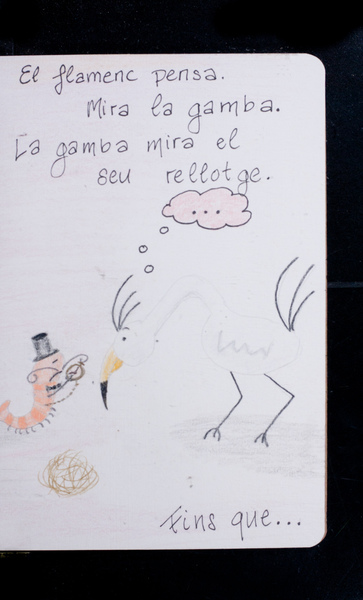 El flamenc pensa.
Mira la gamba.
La gamba mira el
seu rellotge.
...
Fins que...